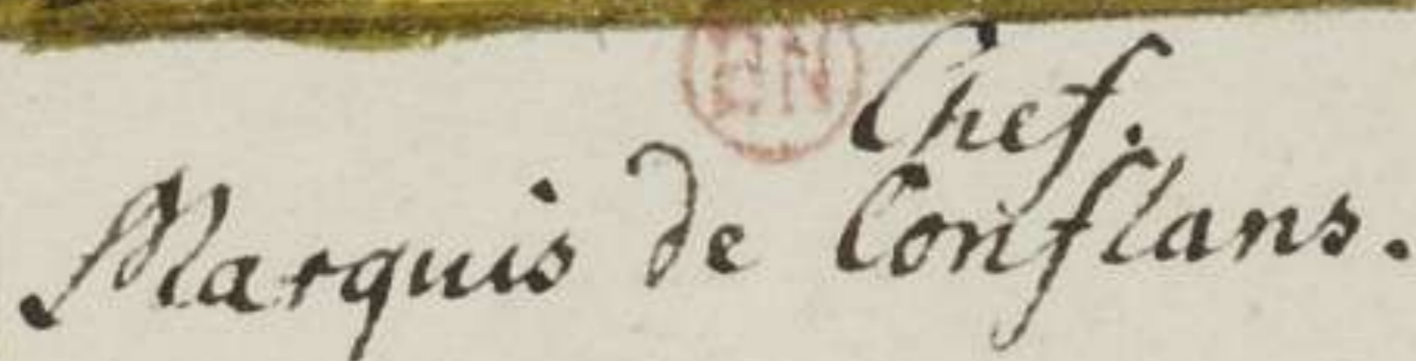 Chef.
Marquis de Conflans.